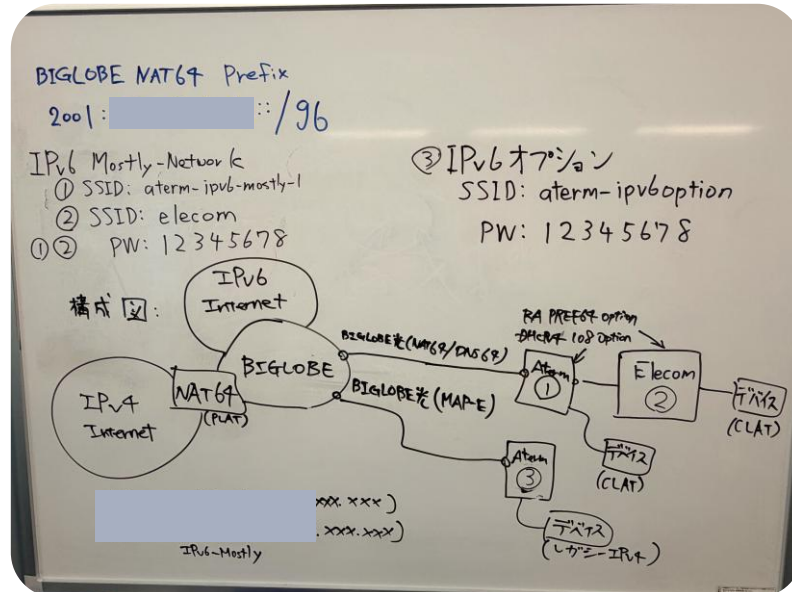 BIGLOBE NAT64 Prefix
2001: ::/96
IPv6 Mostly-Network
① SSID: aterm-ipv6-mostly-1
② SSID: elecom
①② PW: 12345678
③IPv6オプション
SSID: aterm-ipv6option
PW: 12345678
構成図:
IPv6
Internet
BIGLOBE
NAT64
(PLAT)
IPv4
Internet
BIGLOBE光(NAT64/DNS64)
BIGLOBE光(MAP-E)
RA PREF64 option
DHCPv4 108 option
Aterm
①
Elecom
②
デバイス
(CLAT)
デバイス
(CLAT)
Aterm
③
デバイス
(レガシーIPv4)
xxx.xxx)
.xxx.xxx)
IPv6-Mostly